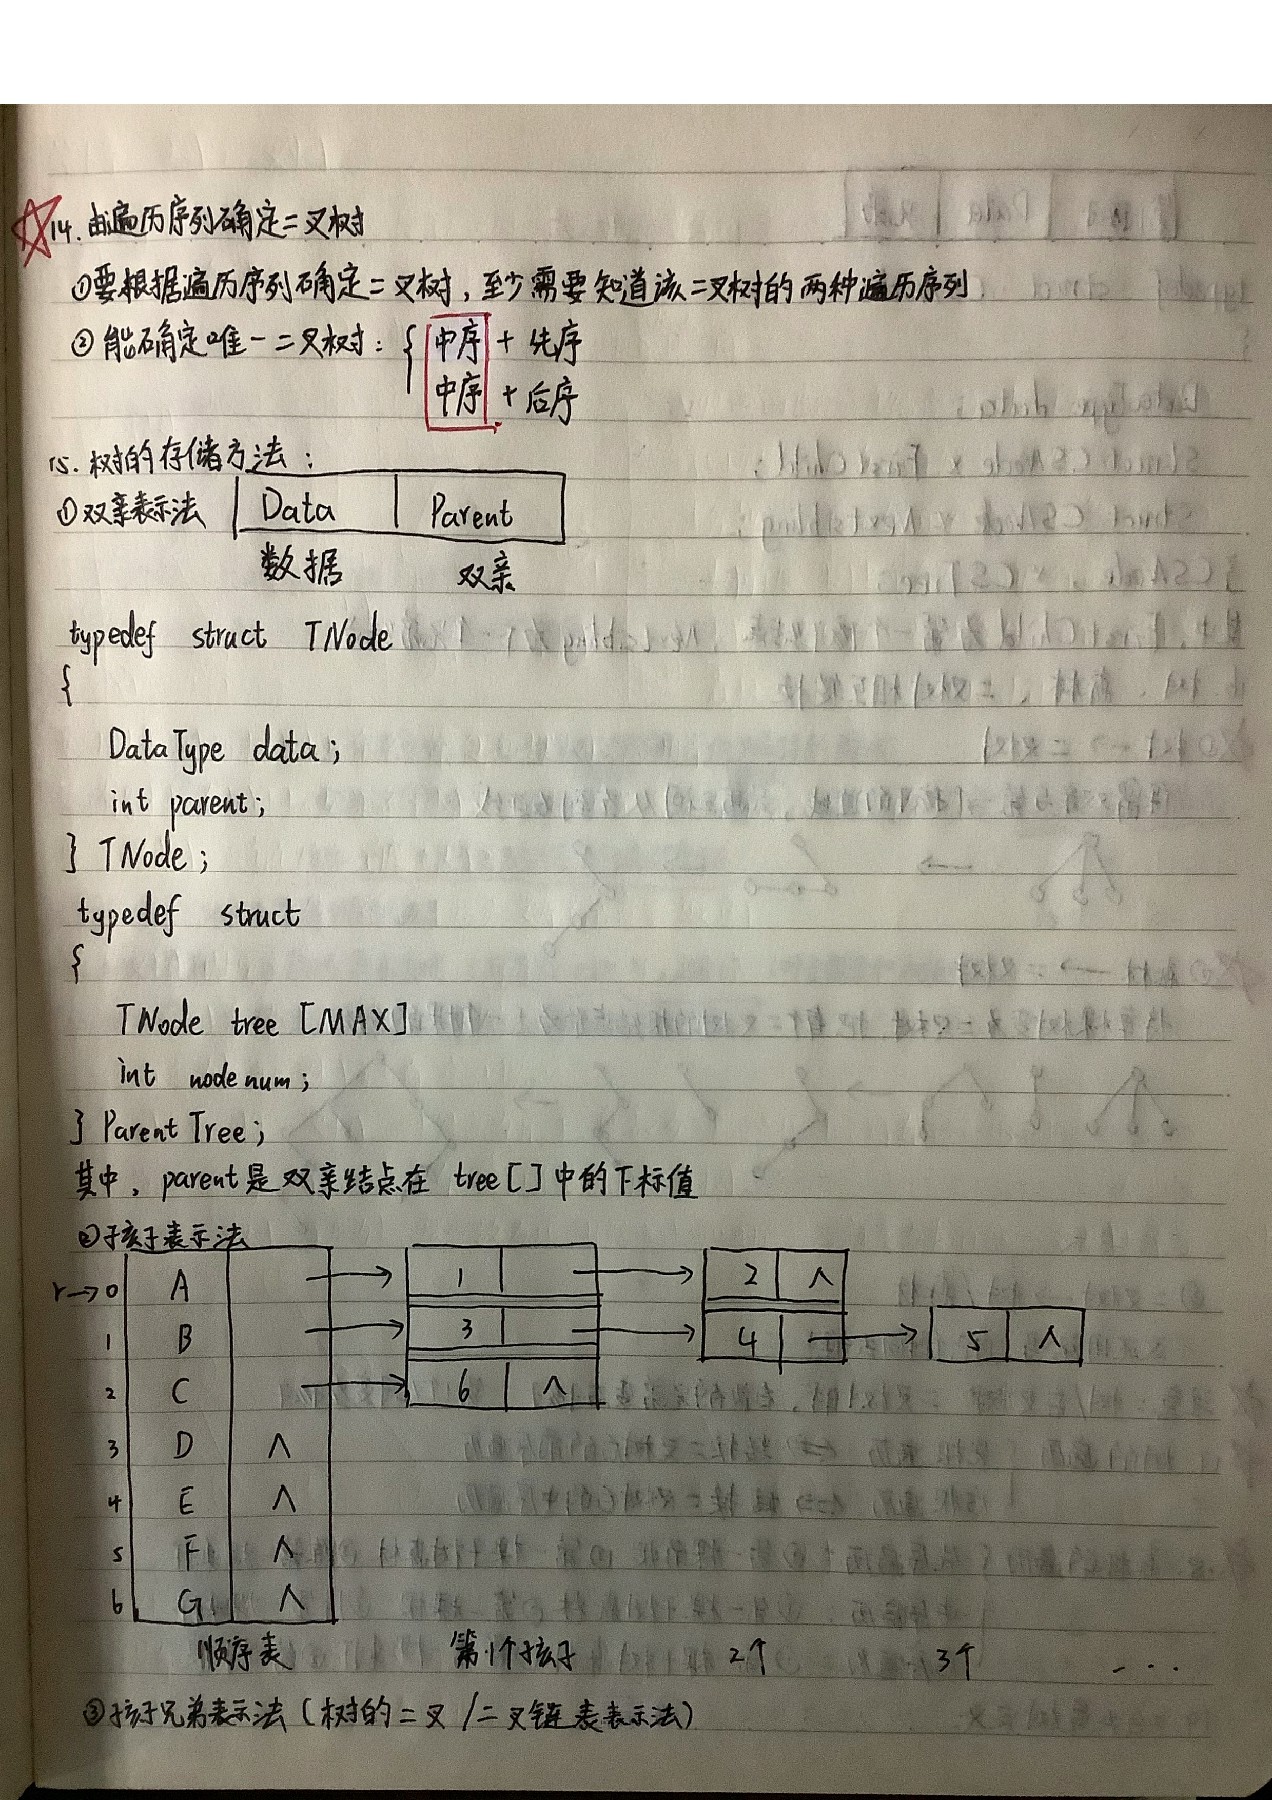 14. 由遍历序列确定二叉树
①要根据遍历序列确定二叉树，至少需要知道该二叉树的两种遍历序列
②能确定唯一二叉树： { 中序 + 先序
中序 + 后序
15. 树的存储方法：
①双亲表示法 Data Parent
数据 双亲
typedef struct TNode
{
DataType data;
int parent;
} TNode;
typedef struct
{
TNode tree [MAX]
int nodenum;
} ParentTree;
其中，parent是双亲结点在 tree[] 中的下标值
②孩子表示法
r→0 A → 1 → 2 ∧
1 B → 3 → 4 → 5 ∧
2 C → 6 ∧
3 D ∧
4 E ∧
5 F ∧
6 G ∧
顺序表 第1个孩子 2个 3个 ...
③孩子兄弟表示法（树的二叉/二叉链表表示法）